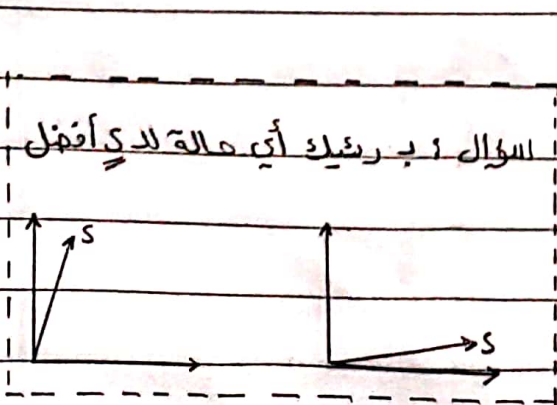 سؤال : بـ رئيك أي حالة لد S أفضل
S
S